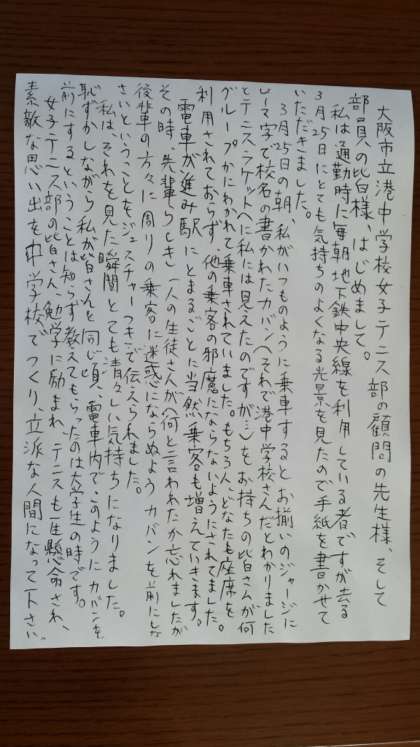 大阪市立港中学校女子テニス部の顧問の先生様、そして
部員の皆様、はじめまして。
私は通勤時に毎朝地下鉄中央線を利用している者ですが去る
3月25日にとても気持ちのよくなる光景を見たので手紙を書かせて
いただきました。
3月25日の朝、私がいつものように乗車するとお揃いのジャージに
ローマ字で校名の書かれたカバン(それで港中学校さんだとわかりました)
とテニスラケット(に私には見えたのですが…)をお持ちの皆さんが何
グループかにわかれて乗車されていました。もちろん、どなたも座席を
利用されておらず、他の乗客の邪魔にならないようにされてました。
電車が進み駅にとまるごとに当然、乗客も増えていきます。
その時、先輩らしき一人の生徒さんが(何と言われたか忘れましたが)
後輩の方々に周りの乗客に迷惑にならぬようカバンを前にしな
さいということをジェスチャーつきで伝えられました。
私はそれを見た瞬間とても清々しい気持ちになりました。
恥ずかしながら私が皆さんと同じ頃、電車内でこのようにカバンを
前にするということは知らず教えてもらったのは大学生の時です。
女子テニス部の皆さん、勉学に励まれ、テニスも一生懸命され、
素敵な思い出を中学校でつくり、立派な人間になって下さい。